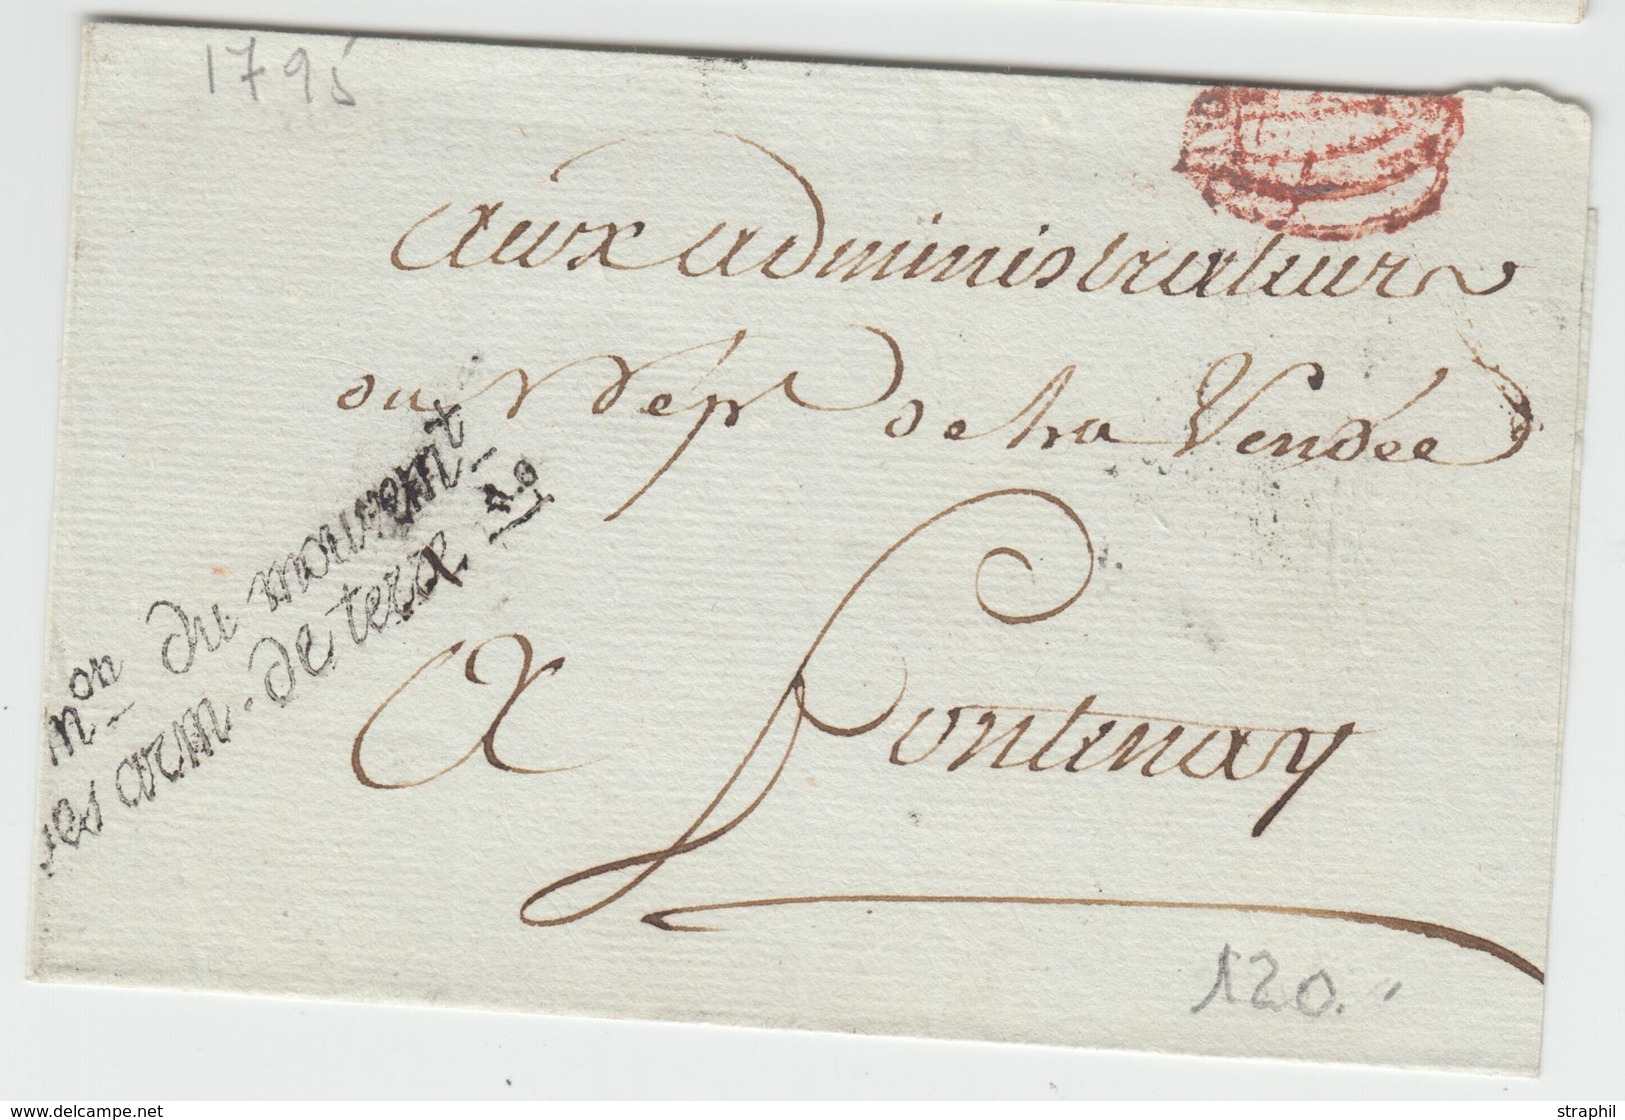 1795
aux administrateurs
du Dépt de la Vendée
mon du mouvemt
des arm. de terre
A Fontenay
120.
www.delcampe.net
straphil